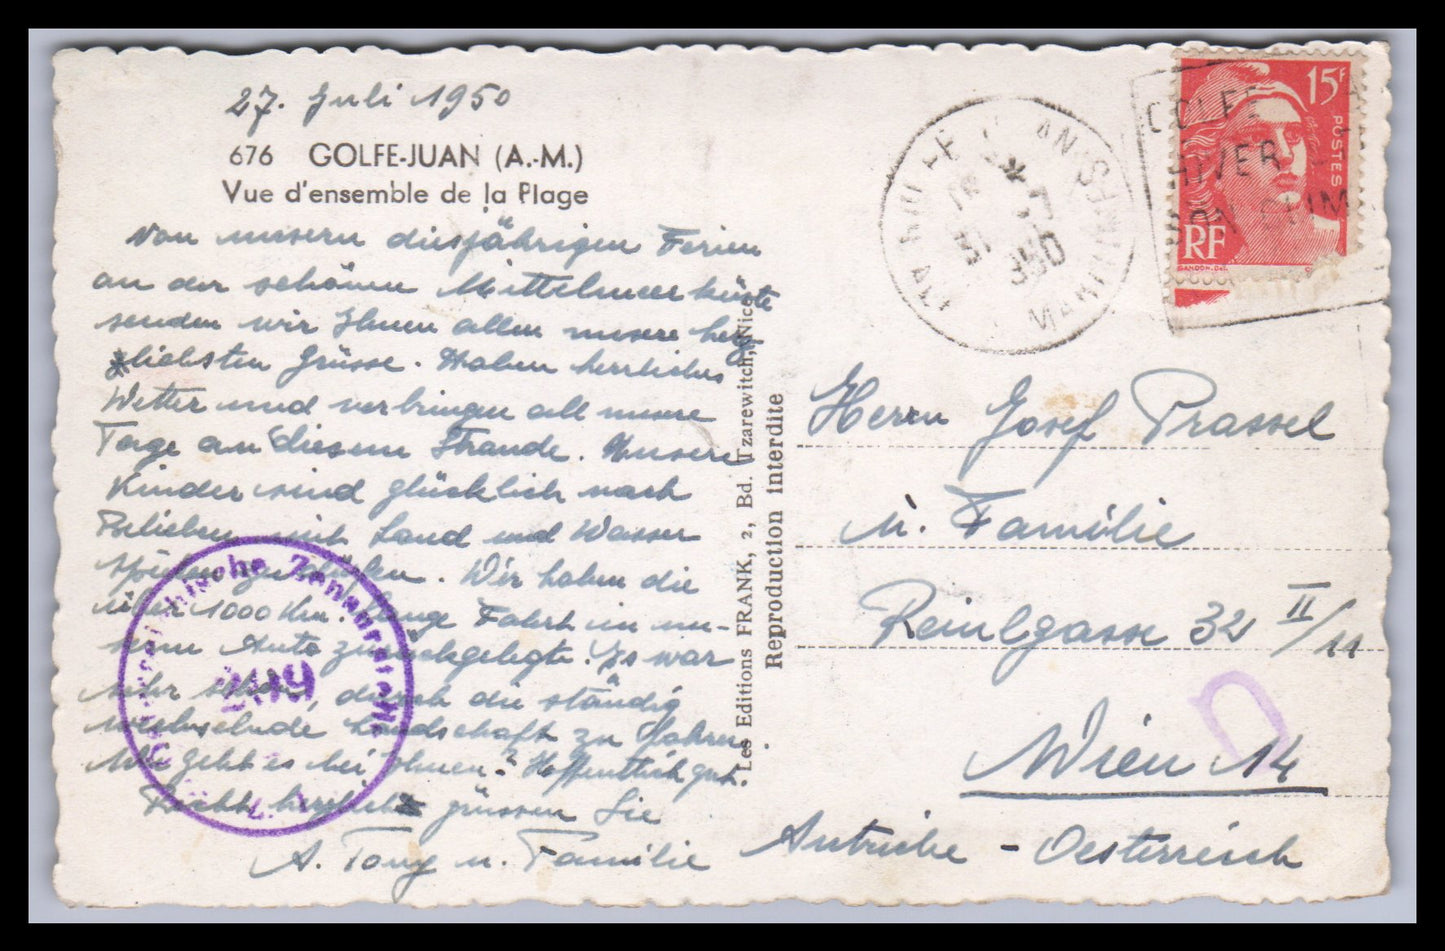 27. Juli 1950
676 GOLFE-JUAN (A.-M.)
Vue d'ensemble de la Plage
Von unsern diesjährigen Ferien
an der schönen Mittelmeerküste
senden wir Ihnen allen unsere herz
lichsten Grüsse. Haben herrliches
Wetter und verbringen all unsere
Tage an diesem Strande. Unsere
Kinder sind glücklich nach
Belieben mit Sand und Wasser
spielen zu
über 1000 Km. lange Fahrt im un-
serm Auto zurückgelegt. Es war
sehr schön, durch die ständig
wechselnde Landschaft zu fahren.
Wie geht es bei Ihnen? Hoffentlich gut.
Recht herzlich grüssen Sie
A. Tony u. Familie
Österreichische Zensurstelle
Les Editions FRANK, 2, Bd. Tzarewitch, Nice
Reproduction interdite
ALPES MARITIMES
GOLFE
HIVER
BON CLIM
15F
POSTES
RF
GANDON
Herrn Josef Prassel
u. Familie
Reinlgasse 32 II/11
Wien 14
Autriche - Oesterreich